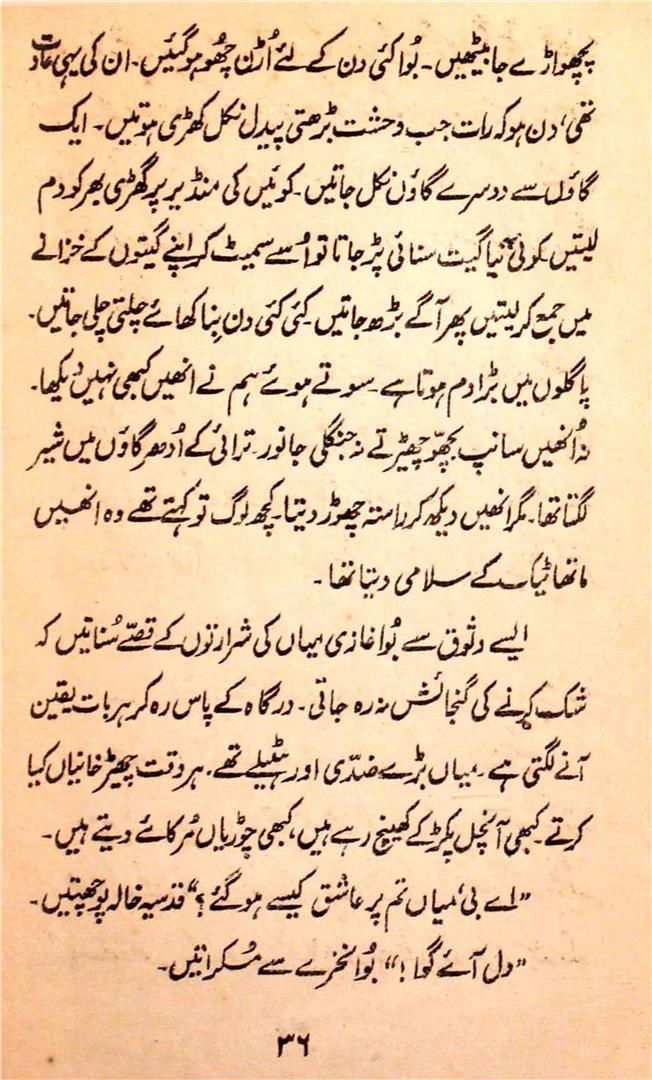 پچھواڑے جا بیٹھیں۔ بُوا کئی دن کے لئے اُڑن چُھو ہوگئیں۔ ان کی یہی عادت
تھی، دن ہو کہ رات جب وحشت بڑھتی پیدل نکل کھڑی ہوتیں۔ ایک
گاؤں سے دوسرے گاؤں نکل جاتیں۔ کوئیں کی منڈیر پر گھڑی بھر کو دم
لیتیں کوئی نیا گیت سنائی پڑ جاتا تو اُسے سمیٹ کر اپنے گیتوں کے خزانے
میں جمع کر لیتیں پھر آگے بڑھ جاتیں۔ کئی کئی دن بِنا کھائے چلتی چلی جاتیں۔
پاگلوں میں بڑا دم ہوتا ہے۔ سوتے ہوئے ہم نے انھیں کبھی نہیں دیکھا۔
نہ اُنھیں سانپ بچھّو چھیڑتے نہ جنگلی جانور۔ ترائی کے اُدھر گاؤں میں شیر
لگتا تھا۔ مگر انھیں دیکھ کر راستہ چھوڑ دیتا۔ کچھ لوگ تو کہتے تھے وہ انھیں
ماتھا ٹیک کے سلامی دیتا تھا۔
ایسے وثوق سے بُوا غازی میاں کی شرارتوں کے قصّے سُناتیں کہ
شک کرنے کی گنجائش نہ رہ جاتی۔ درگاہ کے پاس رہ کر ہر بات یقین
آنے لگتی ہے۔ میاں بڑے ضدّی اور ہٹیلے تھے۔ ہر وقت چھیڑ خانیاں کیا
کرتے۔ کبھی آنچل پکڑ کے کھینچ رہے ہیں، کبھی چوڑیاں مُرکائے دیتے ہیں۔
”اے بی‘ میاں تم پر عاشق کیسے ہوگئے؟“ قدسیہ خالہ پوچھتیں۔
”دل آئے گوا!“ بُوا نخرے سے مُسکراتیں۔
۳۶